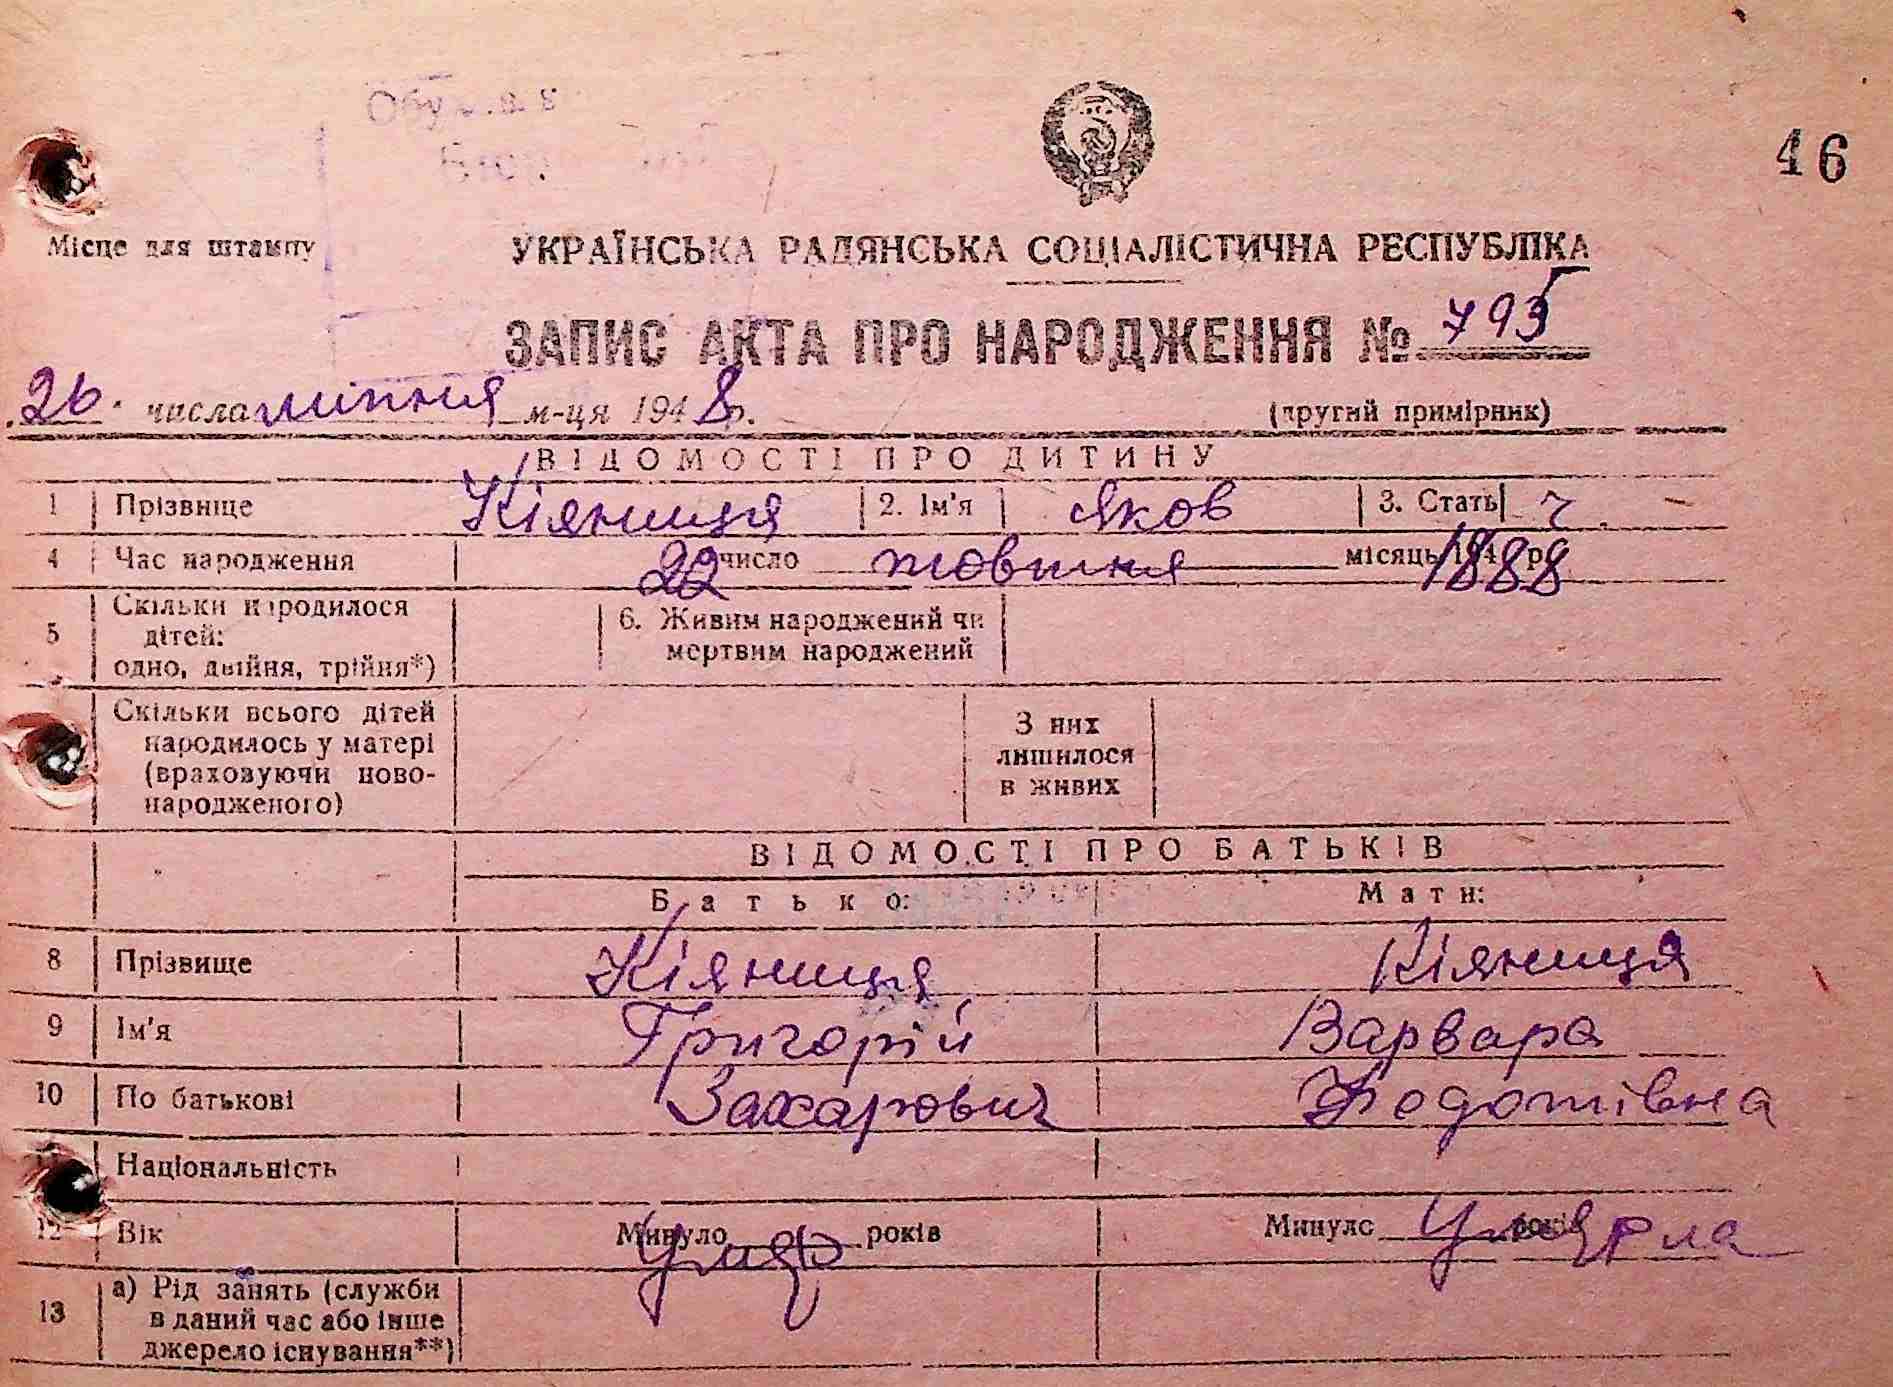 46
Місце для штампу
УКРАЇНСЬКА РАДЯНСЬКА СОЦІАЛІСТИЧНА РЕСПУБЛІКА
ЗАПИС АКТА ПРО НАРОДЖЕННЯ № 795
26 числа липня м-ця 1948 р.
(другий примірник)
ВІДОМОСТІ ПРО ДИТИНУ
1 Прізвище Кіяниця 2. Ім'я Яков 3. Стать ч.
4 Час народження 22 число жовтня місяць 1888 р
5 Скільки народилося
дітей:
одно, двійня, трійня*)
6. Живим народжений чи
мертвим народжений
Скільки всього дітей
народилось у матері
(враховуючи ново-
народженого)
З них
лишилося
в живих
ВІДОМОСТІ ПРО БАТЬКІВ
Батько: Мати:
8 Прізвище Кіяниця Кіяниця
9 Ім'я Григорій Варвара
10 По батькові Захарович Федотівна
Національність
12 Вік Минуло років Умер Минуло Умерла
13 а) Рід занять (служби
в даний час або інше
джерело існування**)